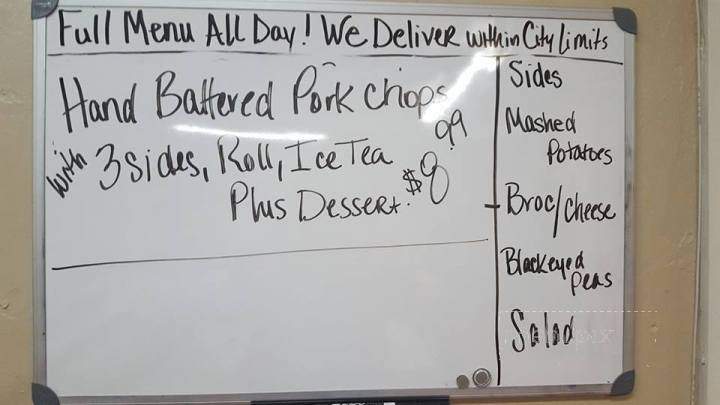 Full Menu All Day! We Deliver within City Limits
Hand Battered Pork Chops
with 3 sides, Roll, Ice Tea
Plus Dessert. $8.99
Sides
Mashed
Potatoes
Broc/Cheese
Blackeyed
Peas
Salad